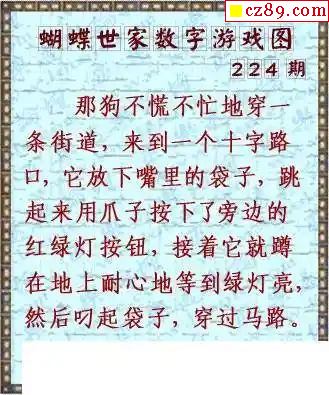 cz89.com
蝴蝶世家数字游戏图
224期
那狗不慌不忙地穿一
条街道，来到一个十字路
口，它放下嘴里的袋子，跳
起来用爪子按下了旁边的
红绿灯按钮，接着它就蹲
在地上耐心地等到绿灯亮，
然后叼起袋子，穿过马路。